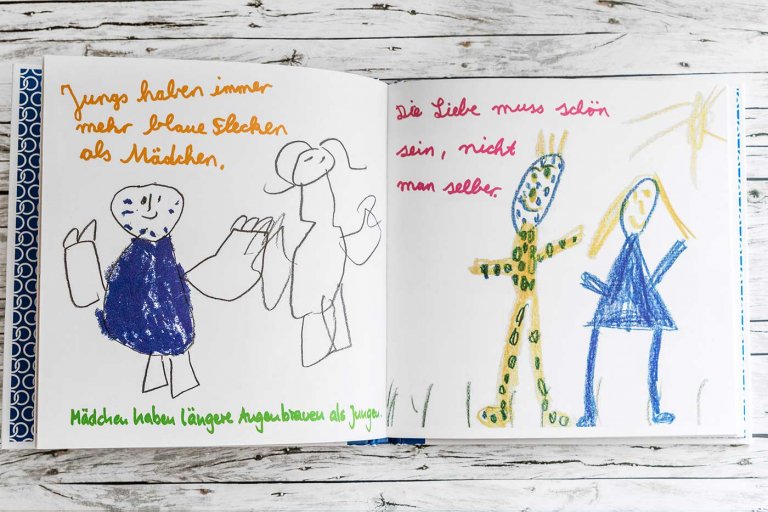 Jungs haben immer
mehr blaue Flecken
als Mädchen.
Mädchen haben längere Augenbrauen als Jungen.
Die Liebe muss schön
sein, nicht
man selber.